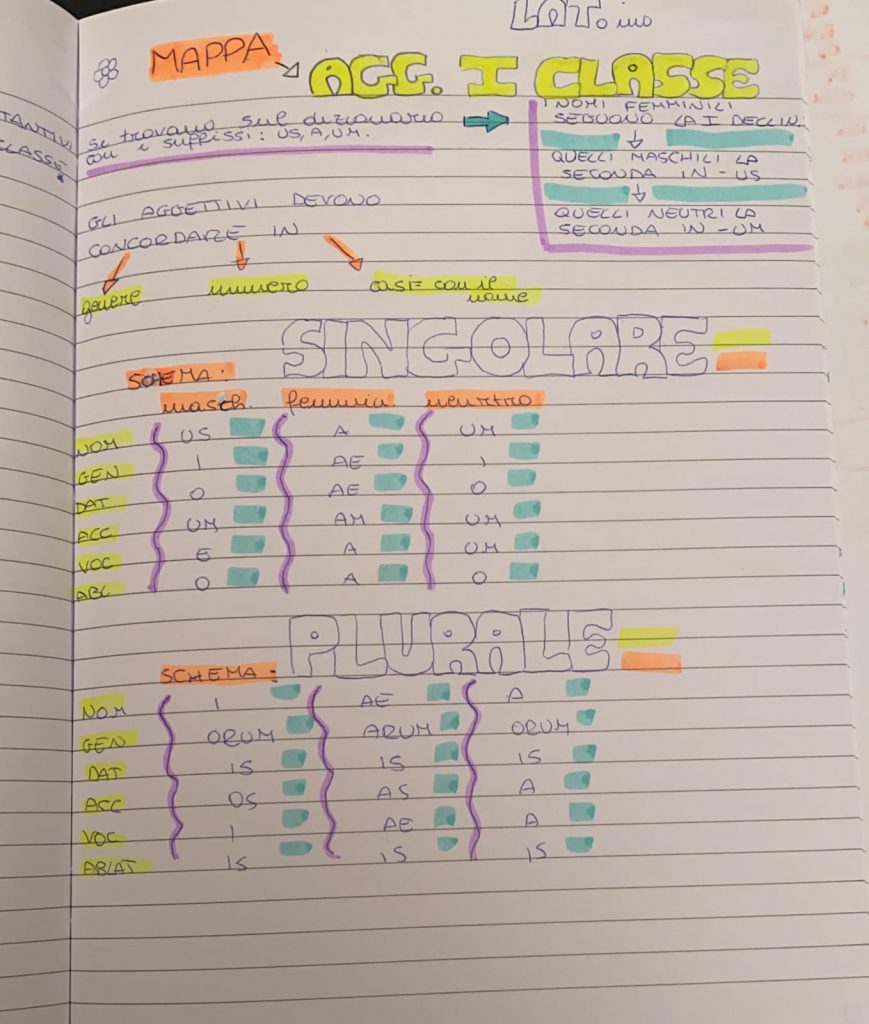 LAT.ino
MAPPA
AGG. I CLASSE
TANTIVI
CLASSE
si trovano sul dizionario
con i suffissi: US, A, UM.
I NOMI FEMMINILI
SEGUONO LA I DECLIN.
QUELLI MASCHILI LA
SECONDA IN -US
QUELLI NEUTRI LA
SECONDA IN -UM
GLI AGGETTIVI DEVONO
CONCORDARE IN
genere numero casi con il
nome
SINGOLARE
SCHEMA:
masch. femmia neurtro
NOM US A UM
GEN I AE I
DAT O AE O
ACC UM AM UM
VOC E A UM
ABL O A O
PLURALE
SCHEMA:
NOM I AE A
GEN ORUM ARUM ORUM
DAT IS IS IS
ACC OS AS A
VOC I AE A
ABLAT IS IS IS